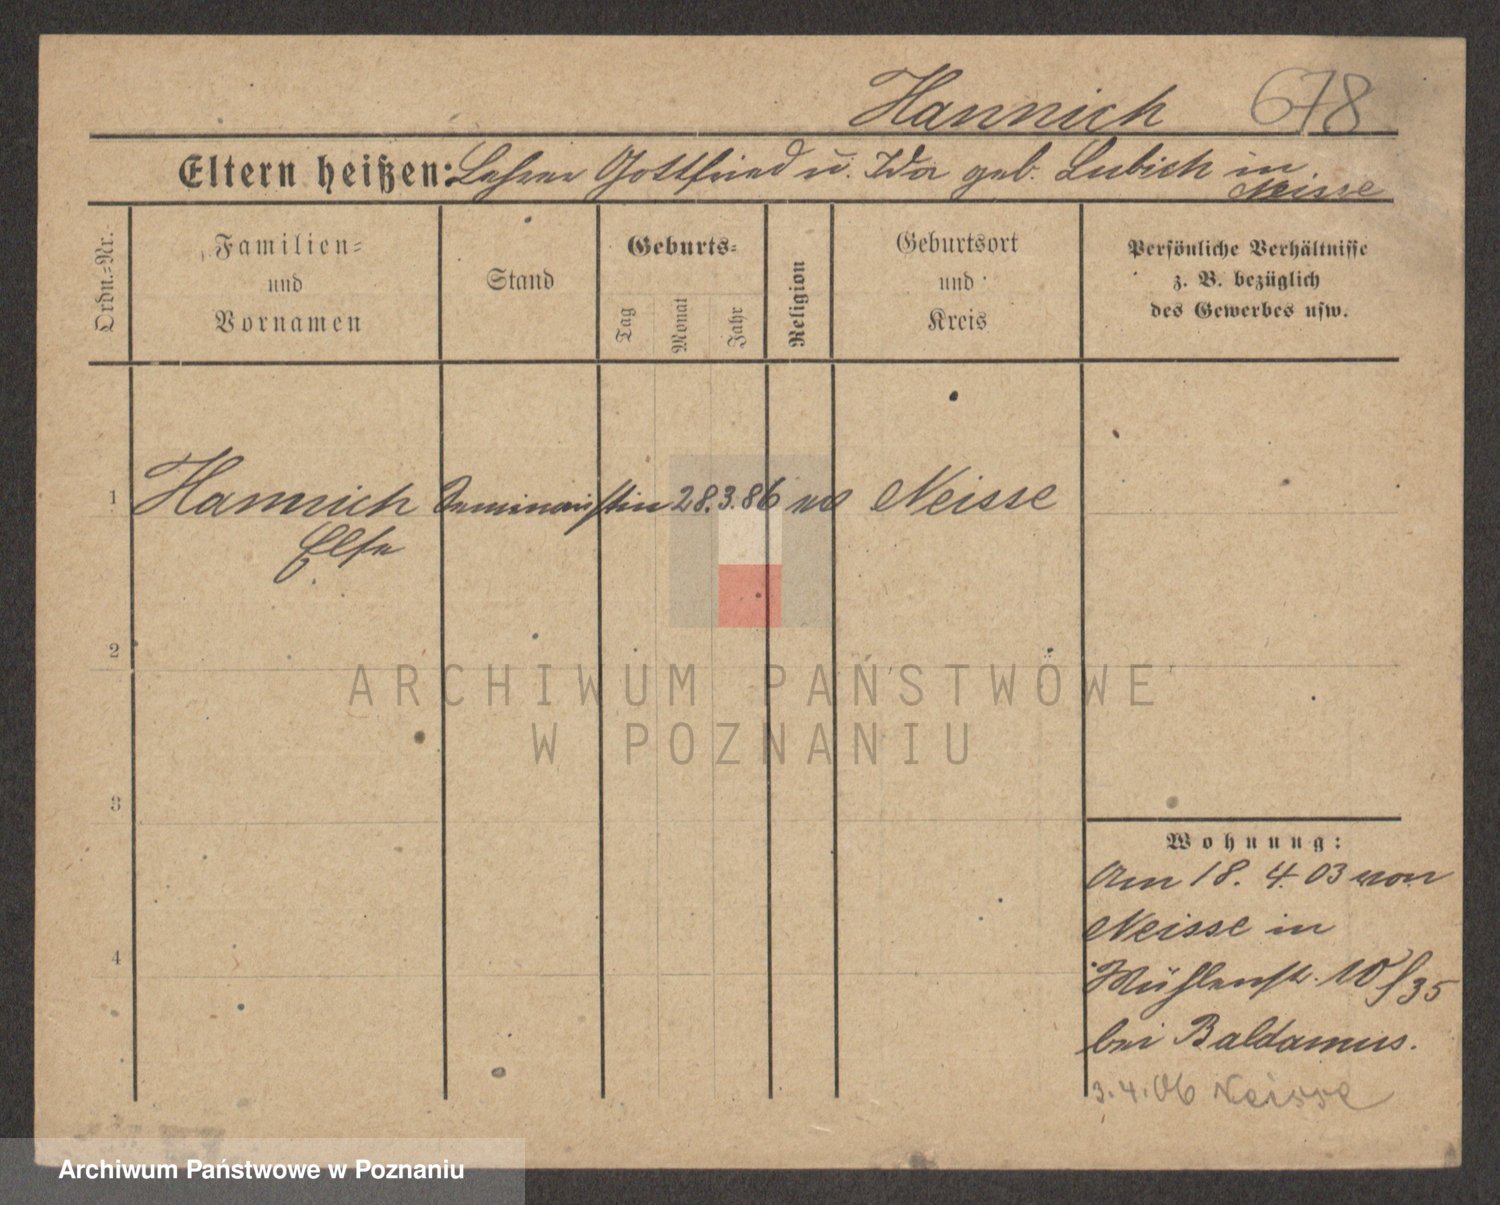 Hannich 678
Eltern heißen: Lehrer Gottfried u. Ida geb. Lubich in
Neisse
Ordn.=Nr.
Familien=
und
Vornamen
Stand
Geburts=
Tag
Monat
Jahr
Religion
Geburtsort
und
Kreis
Persönliche Verhältnisse
z. B. bezüglich
des Gewerbes usw.
1 Hannich Seminaristin 28. 3. 86 ev Neisse
Else
2
ARCHIWUM PAŃSTWOWE
W POZNANIU
3
Wohnung:
Am 18. 4. 03 von
4 Neisse in
Mühlenstr. 10/35
bei Baldamus.
3. 4. 06 Neisse
Archiwum Państwowe w Poznaniu